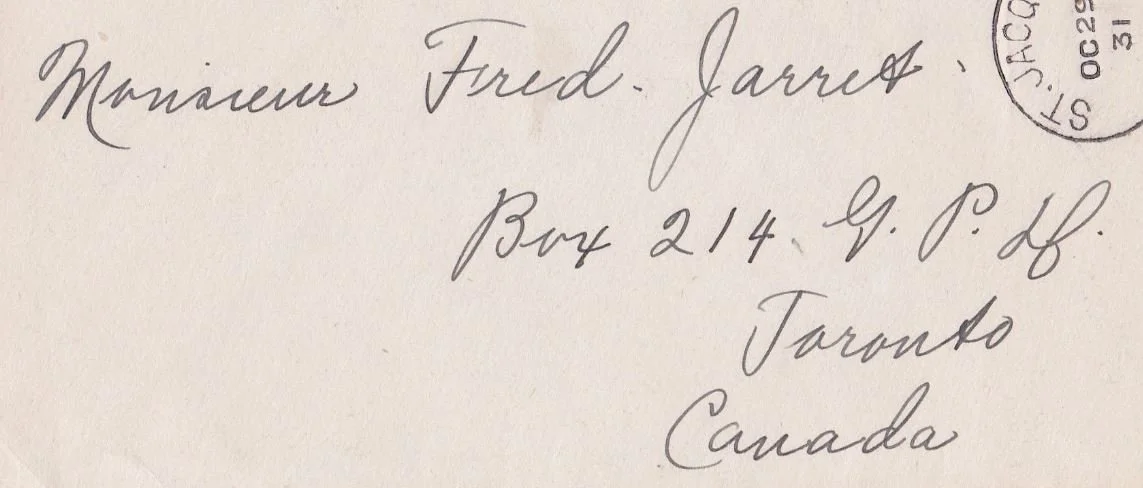 Monsieur Fred. Jarret.
ST. JACQ
OC 29
31
Box 214 G. P.
Toronto
Canada